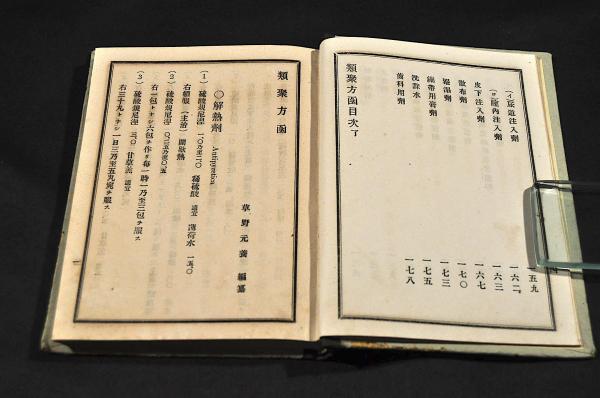 (イ)尿道注入劑 一五九
(ロ)膣內注入劑 一六二
皮下注入劑 一六三
散布劑 一六七
罨溫劑 一七〇
繃帶用膏劑 一七三
洗滌水 一七五
齒科用劑 一七八
類聚方函目次了
類聚方函
草野元養編纂
〇解熱劑 Antipyretica
(1) 硫酸規尼涅 一、〇乃至二、〇 稀硫酸 適宜 薄荷水 一五、〇
右頓服 (主治) 間歇熱
(2) 硫酸規尼涅 〇、二五乃至〇、五
右一包トナシ六包ヲ作リ每一時一乃至三包ヲ服ス
(3) 硫酸規尼涅 三、〇 甘草羔 適宜
右三十九トナシ一日三乃至五丸宛ヲ服ス